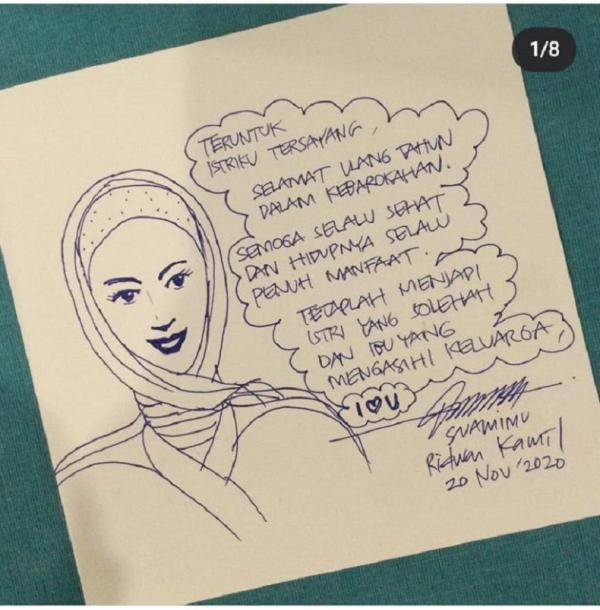 1/8
TERUNTUK
ISTRIKU TERSAYANG,
SELAMAT ULANG TAHUN
DALAM KEBAROKAHAN.
SEMOGA SELALU SEHAT
DAN HIDUPNYA SELALU
PENUH MANFAAT.
TETAPLAH MENJADI
ISTRI YANG SOLEHAH
DAN IBU YANG
MENGASIHI KELUARGA,
I ♥ U
SUAMIMU
Ridwan Kamil
20 Nov '2020